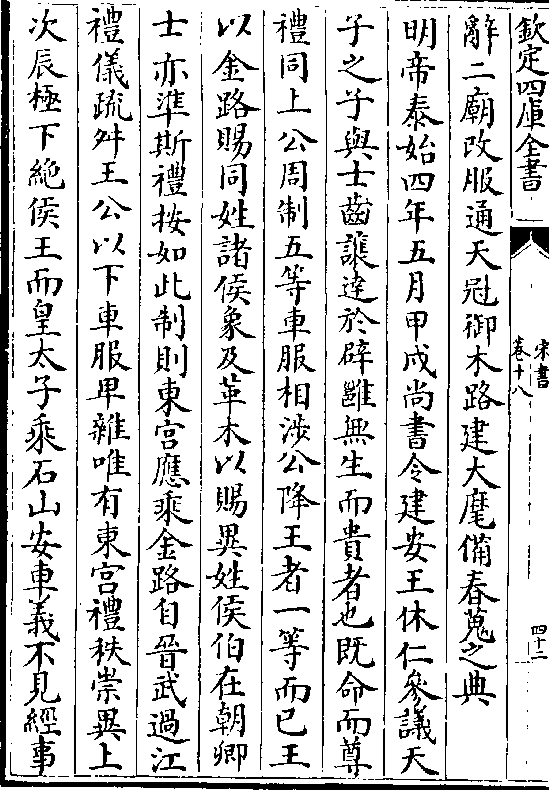 欽定四庫全書
宋書
卷十八
四十二
辭二廟改服通天冠御木路建大麾備春蒐之典
明帝泰始四年五月甲戌尚書令建安王休仁參議天
子之子與士齒讓達於辟雝無生而貴者也既命而尊
禮同上公周制五等車服相涉公降王者一等而已王
以金路賜同姓諸侯象及革木以賜異姓侯伯在朝卿
士亦準斯禮按如此制則東宮應乘金路自晉武過江
禮儀疏舛王公以下車服卑雜唯有東宮禮秩崇異上
次辰極下絶侯王而皇太子乘石山安車義不見經事